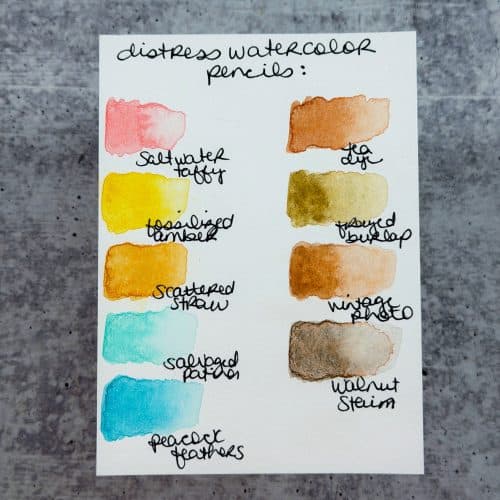 distress watercolor
pencils:
saltwater
taffy
fossilized
amber
scattered
straw
salvaged
patina
peacock
feathers
tea
dye
frayed
burlap
vintage
photo
walnut
stain